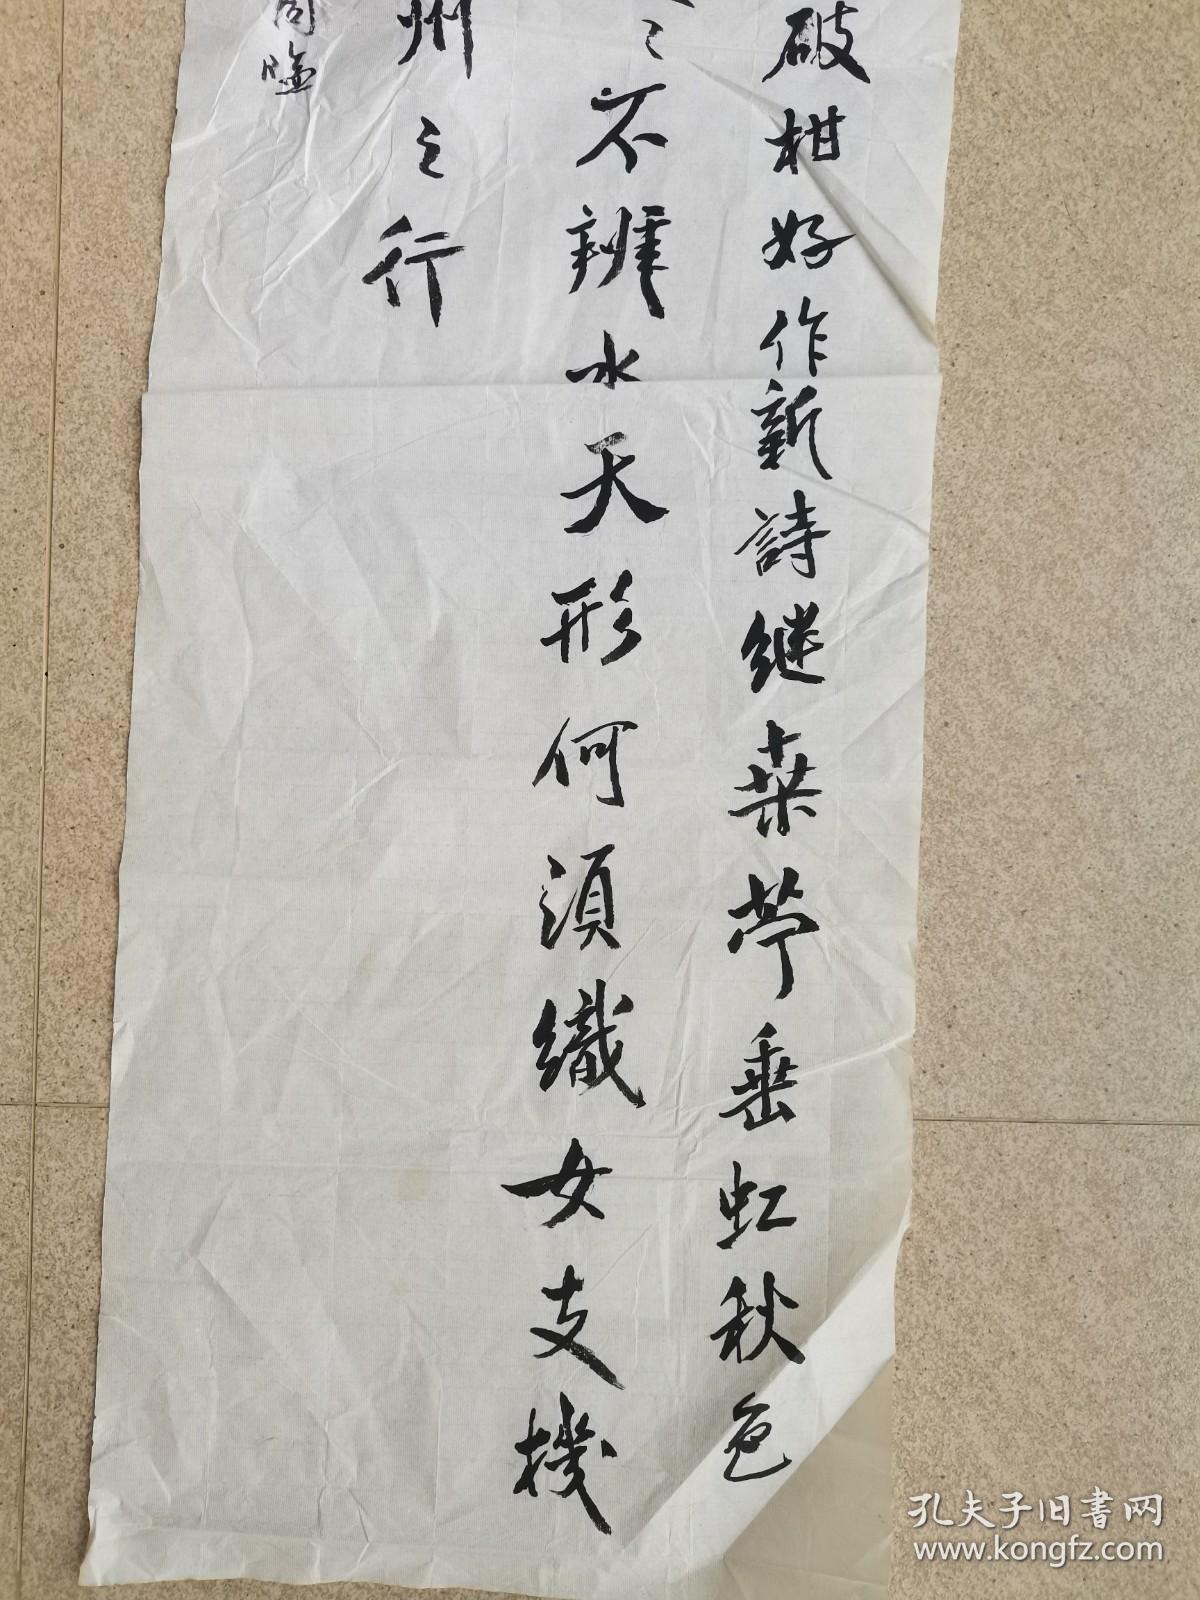 破柑好作新詩继桑苧垂虹秋色
〻不辨水天形何須織女支機
州之行
孔夫子旧書网
www.kongfz.com